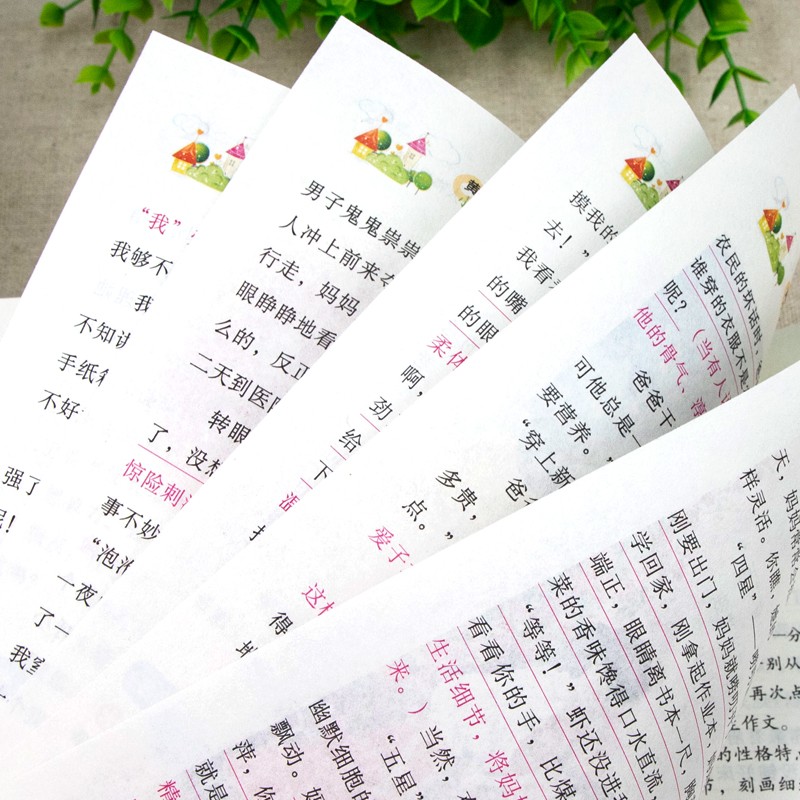 “我”
我够不
我
不知讠
手纸
不好
强了
呢!
我
黄
男子鬼鬼祟祟
人冲上前来
行走，妈妈
眼睁睁地看
么的，反正
二天到医院
转眼
了，没想
惊险刺激
事不妙
“泡泡
一夜
了一
摸我的
去！”
我看
的嘴
的眼
柔体
啊，
劲
给
下
温
农民的坏话时，
谁穿的衣服不是
呢？（当有人
他的骨气、淳
爸爸干
可他总是一
要营养。”
“穿上新
爸
多贵，
点。”
爱子
这样
得
地
天，妈妈
样灵活。你瞧，
“四星”
刚要出门，妈妈就唠叨
学回家，刚拿起作业本，
端正，眼睛离书本一尺，
菜的香味馋得口水直流，
“等等！”虾还没进
看看你的手，比煤
生活细节，将妈
来。）当然，
“五星”
幽默细胞的
飘动。
萍，你
就是
精
一分
别从
再次点
作文。
的性格特点
节，刻画细